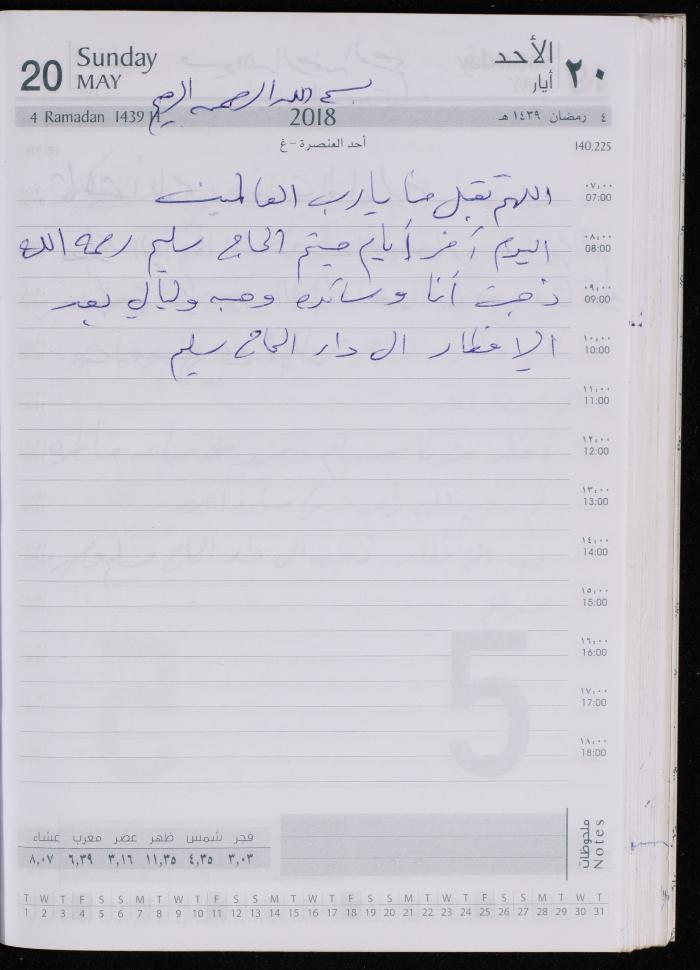 20 Sunday MAY الأحد أيار ٢٠
بسم الله الرحمن الرحيم
4 Ramadan 1439 H 2018 ٤ رمضان ١٤٣٩ هـ
أحد العنصرة - غ 140.225
اللهم تقبل منا يا رب العالمين ٠٧:٠٠ 07:00
اليوم آخر أيام ختم الحاج سليم رحمه الله ٠٨:٠٠ 08:00
ذهبت أنا وسائده وهبه وليالي بعد ٠٩:٠٠ 09:00
الإفطار الى دار الحاج سليم ١٠:٠٠ 10:00
١١:٠٠ 11:00
١٢:٠٠ 12:00
١٣:٠٠ 13:00
١٤:٠٠ 14:00
١٥:٠٠ 15:00
١٦:٠٠ 16:00
١٧:٠٠ 17:00
١٨:٠٠ 18:00
5
ملحوظات Notes
فجر شمس ظهر عصر مغرب عشاء
٣,٠٣ ٤,٣٥ ١١,٣٥ ٣,١٦ ٦,٣٩ ٨,٠٧
T W T F S S M T W T F S S M T W T F S S M T W T F S S M T W T
1 2 3 4 5 6 7 8 9 10 11 12 13 14 15 16 17 18 19 20 21 22 23 24 25 26 27 28 29 30 31